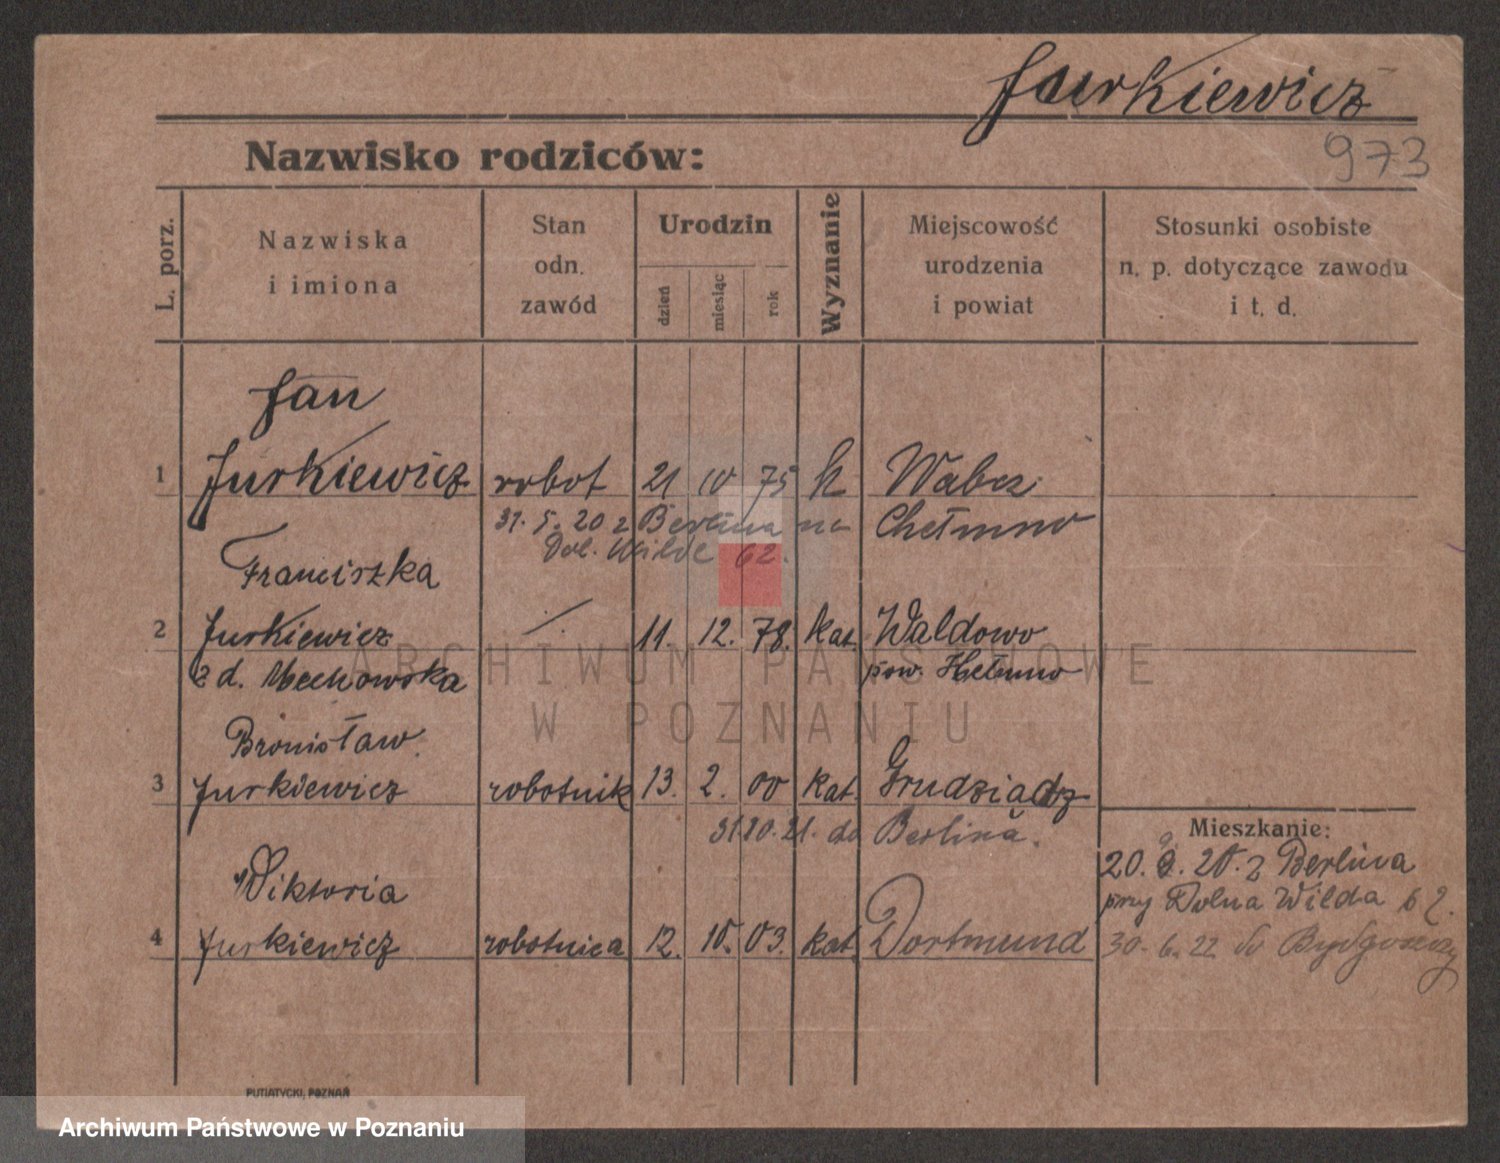 Jurkiewicz
973
Nazwisko rodziców:
L. porz.
Nazwiska
i imiona
Stan
odn.
zawód
Urodzin
dzień
miesiąc
rok
Wyznanie
Miejscowość
urodzenia
i powiat
Stosunki osobiste
n. p. dotyczące zawodu
i t. d.
Jan
1 Jurkiewicz robot 21 10 75 k Wabcz
31. 5. 20 z Berlina na Chełmno
Dol. Wilde 62.
Franciszka
2 Jurkiewicz /. 11. 12. 78. kat. Waldowo
z d. Mechowska pow. Hełmno
Bronisław.
3 Jurkiewicz robotnik 13. 2. 00 kat. Grudziądz
31.10.21. do Berlina.
Mieszkanie:
20. 9. 20. z Berlina
przy Dolna Wilda 62.
Wiktoria
4 Jurkiewicz robotnica 12. 10. 03. kat. Dortmund
30. 6. 22 do Bydgoszczy
ARCHIWUM PAŃSTWOWE
W POZNANIU
PUTIATYCKI, POZNAŃ
Archiwum Państwowe w Poznaniu